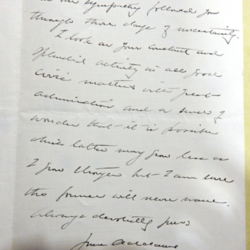 our sympathy followed you
through those days of uncertainty
I look on your constant and
splendid activity in all good
civic matters with great
admiration and a sense of
wonder that it is possible
this latter may grow less as
I grow stronger but I am sure
the former will never wane.
Always devotedly yours
Jane Addams